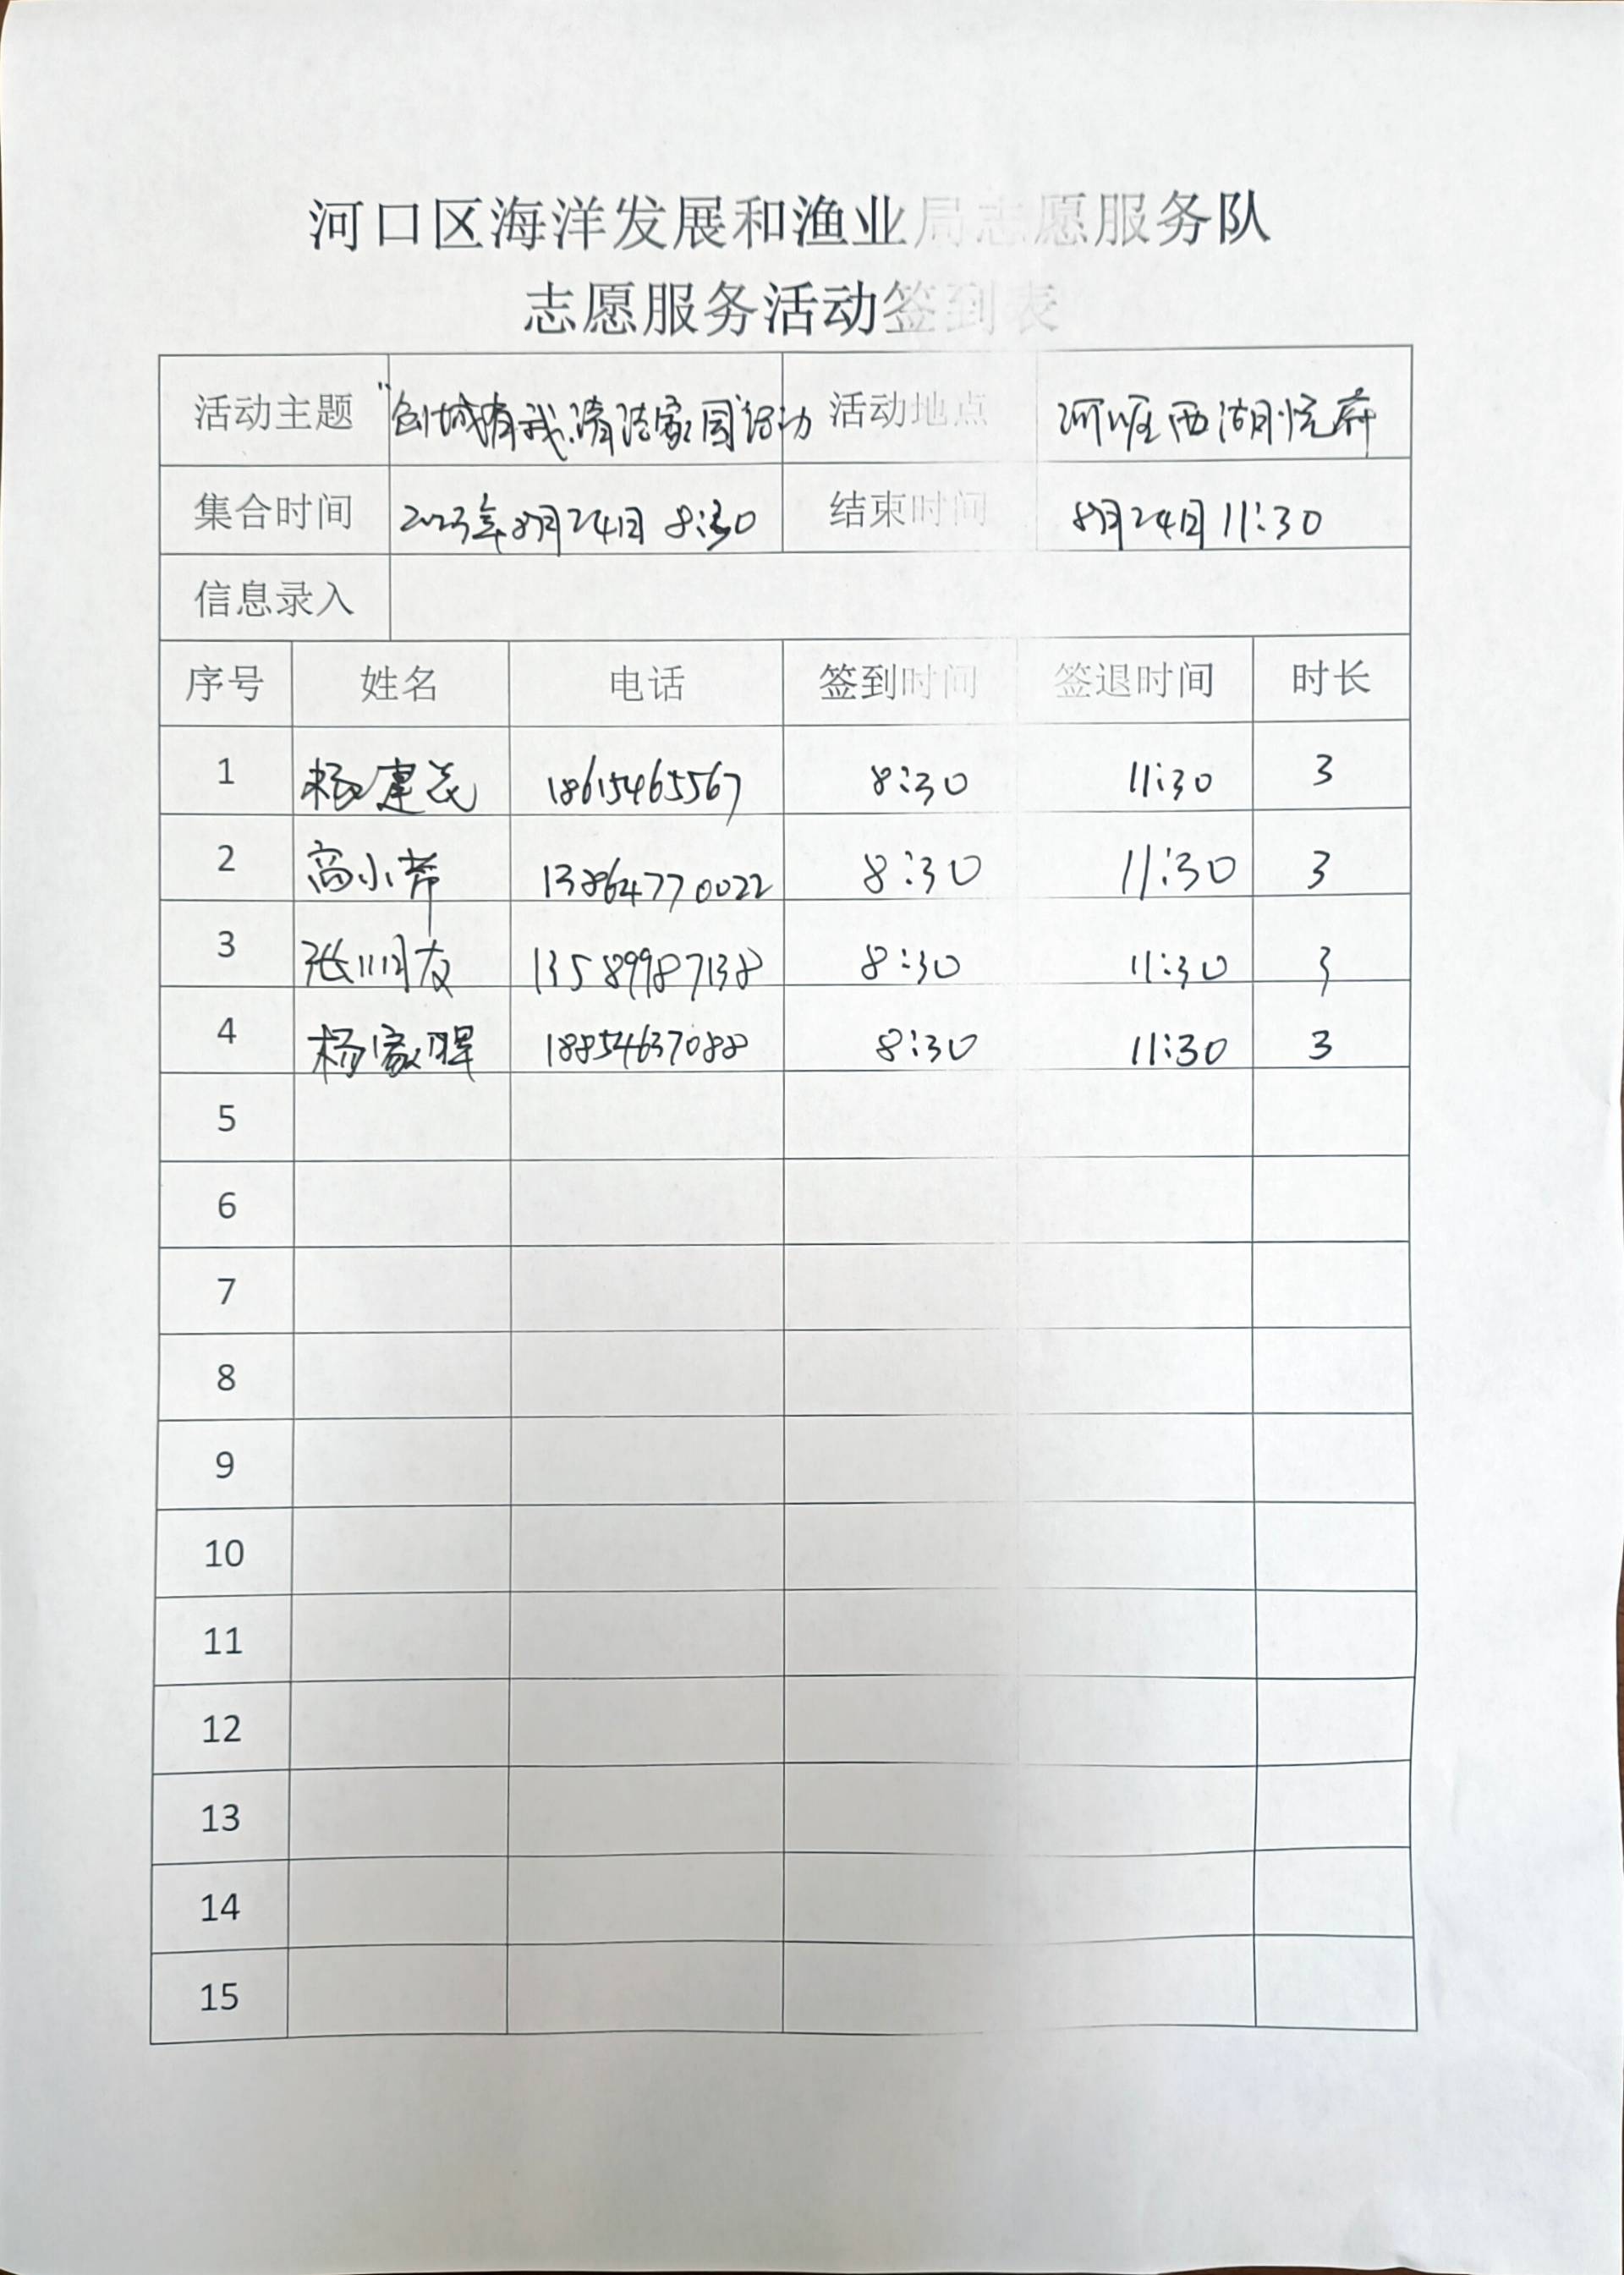 河口区海洋发展和渔业局志愿服务队
志愿服务活动签到表
活动主题 "创城有我、清洁家园"活动 活动地点 河崖西湖悦府
集合时间 2023年8月24日 8:30 结束时间 8月24日 11:30
信息录入
序号 姓名 电话 签到时间 签退时间 时长
1 杨建 18615465567 8:30 11:30 3
2 高小芾 13864770022 8:30 11:30 3
3 张友 13589987138 8:30 11:30 3
4 杨家晖 18854637088 8:30 11:30 3
5
6
7
8
9
10
11
12
13
14
15